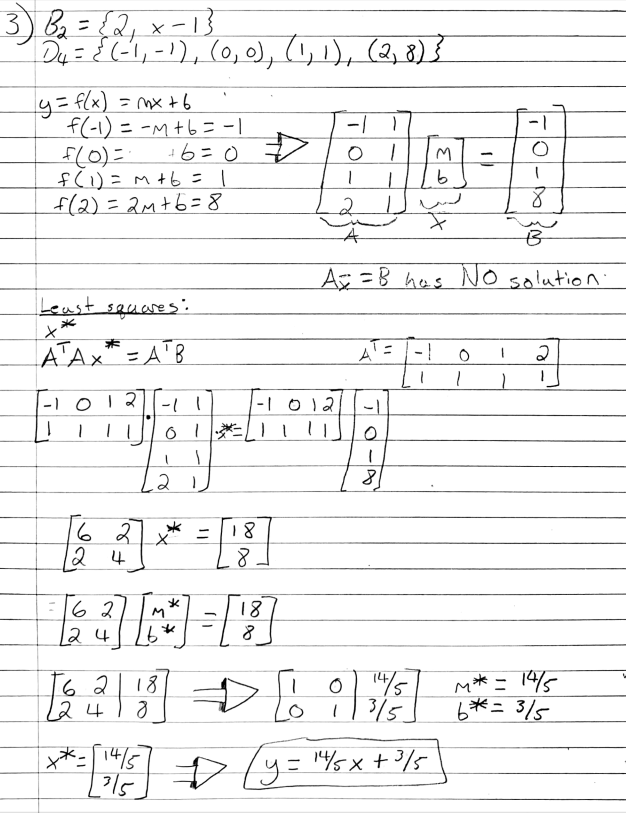 3) B₂ = {2, x-1}
D₄ = {(-1,-1), (0,0), (1,1), (2,8)}
y = f(x) = mx+b
f(-1) = -m+b = -1
f(0) = +b = 0
f(1) = m+b = 1
f(2) = 2m+b = 8
⇒ [-1 1; 0 1; 1 1; 2 1] [m; b] = [-1; 0; 1; 8]
A X B
Ax̄ = B has NO solution.
Least squares:
x*
AᵀAx* = AᵀB Aᵀ = [-1 0 1 2; 1 1 1 1]
[-1 0 1 2; 1 1 1 1] · [-1 1; 0 1; 1 1; 2 1] x* = [-1 0 1 2; 1 1 1 1] [-1; 0; 1; 8]
[6 2; 2 4] x* = [18; 8]
= [6 2; 2 4] [m*; b*] = [18; 8]
[6 2 | 18; 2 4 | 8] ⇒ [1 0 | 14/5; 0 1 | 3/5] m* = 14/5
b* = 3/5
x* = [14/5; 3/5] ⇒ y = 14/5x + 3/5